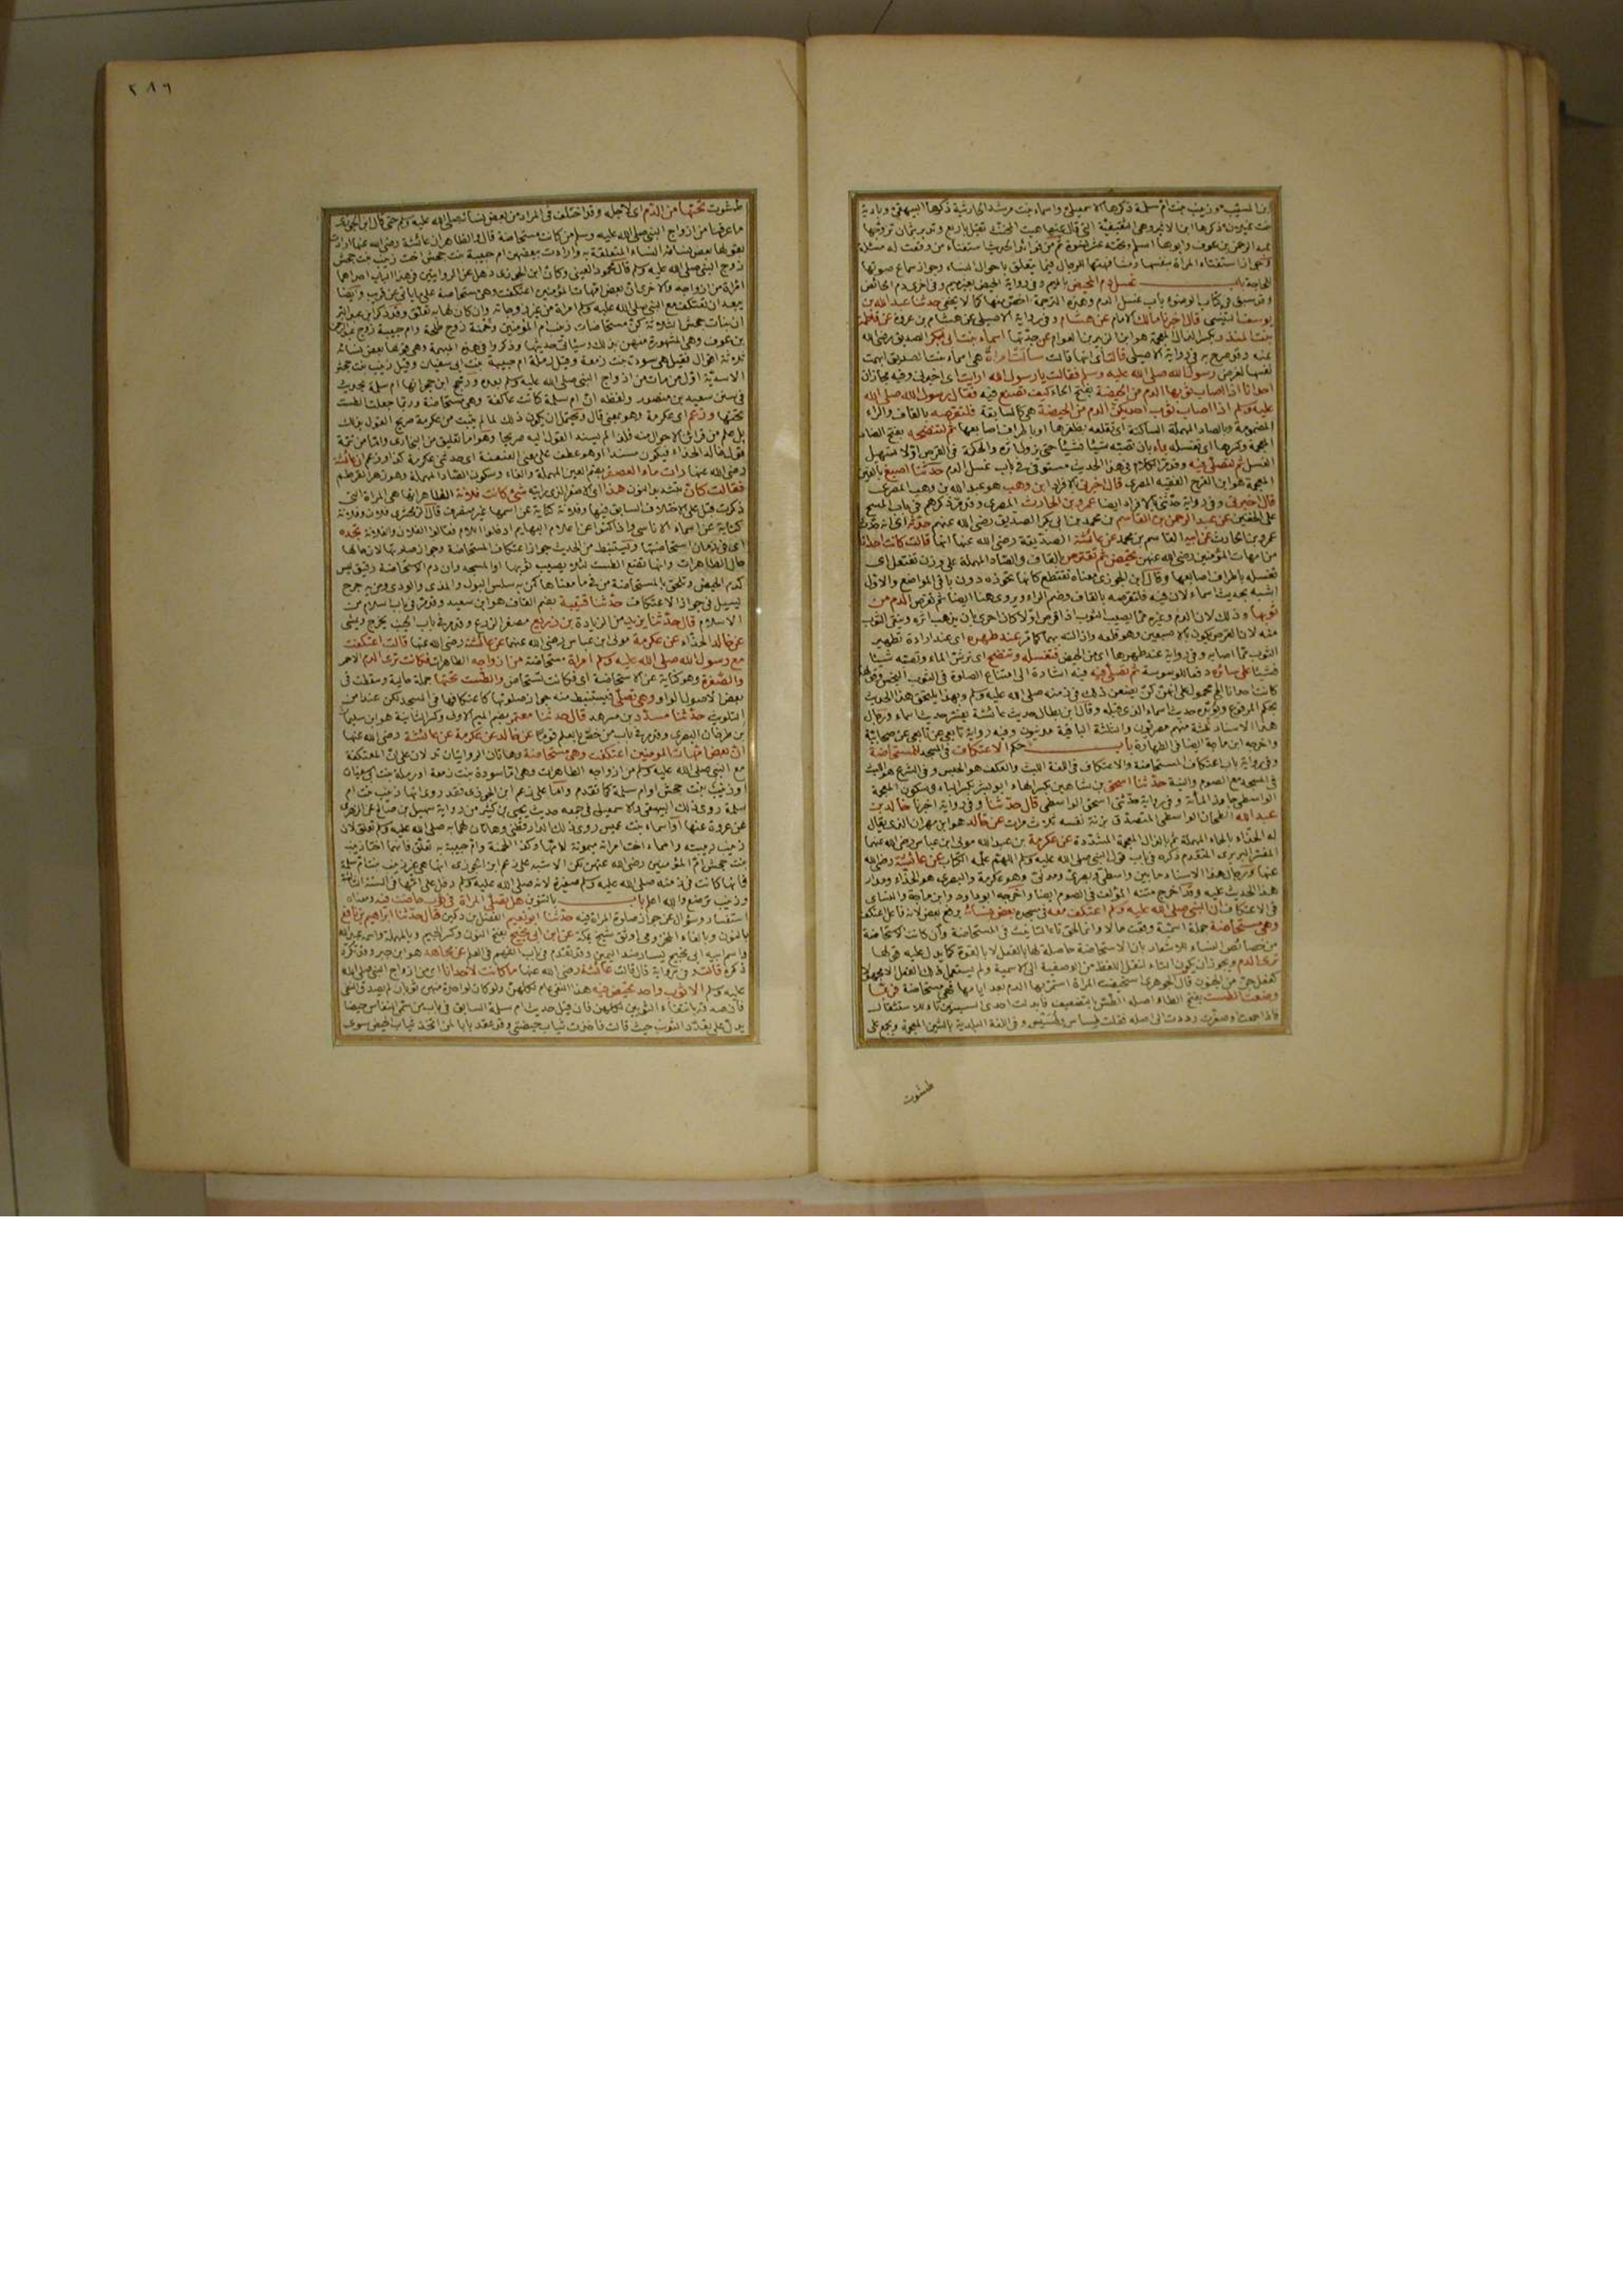 بنت غيلان ذكرها ابن الاثير وهى الثقفية التى قال عنها هيت المخنث تقبل باربع وتدبر بثمان تزوجها
عبد الرحمن بن عوف وابوها اسلم وتحته عشر نسوة
استفتاء المرأة بنفسها ومشافهتها للرجال فيما يتعلق باحوال النساء وجواز سماع صوتها
للحاجة باب غسل دم المحيض
وقد سبق فى كتاب الوضوء باب غسل الدم وهذه الترجمة اخص منها كما لا يخفى حدثنا عبد الله بن
يوسف التنيسى قال اخبرنا مالك الامام عن هشام وفى رواية الاصيلى عن هشام بن عروة عن فاطمة
بنت المنذر بكسر الذال المعجمة هو ابن الزبير بن العوام عن جدتها اسماء بنت ابى بكر الصديق رضى الله
عنه وقد صرح به فى رواية الاصيلى قالت اى انها قالت سألت امرأة هى اسماء بنت الصديق ابهمت
نفسها لغرض رسول الله صلى الله عليه وسلم فقالت يا رسول الله ارايت اى اخبرنى وفيه مجازان
احدانا اذا اصاب ثوبها الدم من الحيضة بفتح الحاء كيف تصنع فيه فقال رسول الله صلى الله
عليه وسلم اذا اصاب ثوب احديكن الدم من الحيضة هى كالسابقة فلتقرصه بالقاف والراء
المضمومة وبالصاد المهملة الساكنة اى تقلعه بظفرها او باطراف اصابعها ثم لتنضحه بفتح الضاد
المعجمة وكسرها اى تغسله بماء بان تصبه شيئا فشيئا حتى يزول اثره والحكمة فى القرص اولا تسهيل
الغسل ثم لتصلى فيه وقد مر الكلام فى هذا الحديث مستوفى فى باب غسل الدم حدثنا اصبغ بالغين
المعجمة هو ابن الفرج الفقيه المصرى قال اخبرنى بالافراد ابن وهب هو عبد الله بن وهب المصرى
قال اخبرنى وفى رواية حدثنى بالافراد ايضا عمرو بن الحارث المصرى وقد مر ذكرهم فى باب المسح
على الخفين عن عبد الرحمن بن القاسم بن محمد بن ابى بكر الصديق رضى الله عنهم حدثه اى انه حدث
عمرو بن الحارث عن ابيه القاسم بن محمد عن عائشة الصديقة رضى الله عنها انها قالت كانت احدانا
من امهات المؤمنين رضى الله عنهن تحيض ثم تقترص بالقاف والصاد المهملة على وزن تفتعل اى
تغسله باطراف اصابعها وقال ابن الجوزى معناه تقتطع كانها تحوذه دون باقى المواضع والاول
اشبه بحديث اسماء لان فيه فلتقرصه بالقاف وضم الراء ويروى هنا ايضا ثم تقرص الدم من
ثوبها وذلك لان الدم وغيره مما يصيب الثوب اذا قرص اولا كان احرى بان يذهب اثره وينقى الثوب
منه لان القرص يكون بالاصبعين وهو قلعه وازالته بهما كما مر عند طهره اى عند ارادة تطهير
الثوب مما اصابه وفى رواية عند طهرها اى من الحيض فتغسله وتنضح اى ترش الماء وتصبه شيئا
فشيئا على سائره دفعا للوسوسة ثم تصلى فيه فيه اشارة الى امتناع الصلوة فى الثوب النجس
كانت احدانا الخ محمول على انهن كن يصنعن ذلك فى زمنه صلى الله عليه وسلم وبهذا يلتحق هذا الحديث
بحكم المرفوع ويؤيده حديث اسماء الذى قبله وقال ابن بطال حديث عائشة يفسر حديث اسماء ورجال
هذا الاسناد ثلثة منهم مصريون والثلثة الباقية مدنيون وفيه رواية تابعى عن تابعى عن صحابية
واخرجه ابن ماجة ايضا فى الطهارة باب حكم الاعتكاف فى المسجد للمستحاضة
وفى رواية باب اعتكاف المستحاضة والاعتكاف فى اللغة اللبث والعكف هو الحبس وفى الشرع هو اللبث
فى المسجد مع الصوم والنية حدثنا اسحق بن شاهين بكسر الهاء ابو بشر بكسر الباء وسكون المعجمة
الواسطى جاوز المائة وفى رواية حدثنى اسحق الواسطى قال حدثنا وفى رواية اخبرنا خالد بن
عبد الله الطحان الواسطى المتصدق بزنة نفسه ثلاث مرات عن خالد هو ابن مهران الذى يقال
له الحذاء بالحاء المهملة ثم بالذال المعجمة المشددة عن عكرمة بن عبد الله مولى ابن عباس رضى الله عنهما
المفسر البربرى المتقدم ذكره فى باب قول النبى صلى الله عليه وسلم اللهم علمه الكتاب عن عائشة رضى الله
عنها ورجال هذا الاسناد ما بين واسطى وبصرى ومدنى وهو عكرمة والبصرى هو الحذاء ومدار
هذا الحديث عليه وقد اخرج متنه المؤلف فى الصوم ايضا واخرجه ابو داود وابن ماجة والنسائى
فى الاعتكاف ان النبى صلى الله عليه وسلم اعتكف معه فى مسجده بعض نسائه برفع بعض لانه فاعل اعتكف
وهى مستحاضة جملة اسمية وقعت حالا وانما لحق تاء التانيث فى المستحاضة وان كانت الاستحاضة
من خصائص النساء للاشعار بان الاستحاضة حاصلة لها بالفعل لا بالقوة كما يدل عليه قولها
ترى الدم ويجوز ان يكون التاء لنقل اللفظ من الوصفية الى الاسمية ولم يستعمل ذلك الفعل الا مجهولا
كفعل جن من الجنون قال الجوهرى استحيضت المرأة استمر بها الدم بعد ايامها فهى مستحاضة فربما
وضعت الطست بفتح الطاء واصله الطس بالتضعيف فابدلت احدى السينين تاء للاستثقال
فاذا جمعت او صغرت رددت الى اصله فقلت طساس وطسيس وفى اللغة البلدية بالشين المعجمة ويجمع على
طشوت
٢٨٦
طشوت تحتها من الدم اى لاجله وقد اختلف فى المراد من بعض نسائه صلى الله عليه وسلم حتى قال ابن الجوزى
ما عرفنا من ازواج النبى صلى الله عليه وسلم من كانت مستحاضة قال والظاهر ان عائشة رضى الله عنها ارادت
بقولها بعض نسائه النساء المتعلقة به وارادت بعضهن ام حبيبة بنت جحش اخت زينب بنت جحش
زوج النبى صلى الله عليه وسلم قال محمود العينى وكأن ابن الجوزى ذهل عن الروايتين فى هذا الباب احداهما
امرأة من ازواجه والاخرى ان بعض امهات المؤمنين اعتكفت وهى مستحاضة على ما ياتى عن قريب وايضا
يبعد ان تعتكف مع النبى صلى الله عليه وسلم امرأة من غير زوجاته وان كان لها به تعلق وقد ذكر ابن عبد البر
ان بنات جحش الثلاثة كن مستحاضات زينب ام المؤمنين وحمنة زوج طلحة وام حبيبة زوج عبد الرحمن
بن عوف وهى المشهورة منهن بذلك وسياتى حديثها وذكروا فى هذه المبهمة وهى قولها بعض نسائه
ثلاثة اقوال فقيل هى سودة بنت زمعة وقيل رملة ام حبيبة بنت ابى سفيان وقيل زينب بنت جحش
الاسدية اول من مات من ازواج النبى صلى الله عليه وسلم بعده ورجح ابن حجر انها ام سلمة بحديث
فى سنن سعيد بن منصور ولفظه ان ام سلمة كانت عاكفة وهى مستحاضة وربما جعلت الطست
تحتها وزعم اى عكرمة وهو بمعنى قال ويحتمل ان يكون ذلك لما لم يثبت من عكرمة صريح القول بذلك
بل علم من قرائن الاحوال منه فلذا لم يسند القول اليه صريحا وهو اما تعليق من البخارى واما من تتمة
قول خالد الحذاء فيكون مسندا او هو عطف على معنى العنعنة اى حدثنى عكرمة كذا وزعم ان عائشة
رضى الله عنها رأت ماء العصفر بضم العين المهملة والفاء وسكون الصاد المهملة وهو زهر القرطم
فقالت كأن بتشديد النون هذا اى الاصفر الذى رايته شئ كانت فلانة الظاهر انها هى المرأة التى
ذكرت قبل على الاختلاف السابق فيها وفلانة كناية عن اسمها غير منصرف قال الزمخشرى فلان وفلانة
كناية عن اسماء الاناسى واذا كنوا عن اعلام البهائم ادخلوا اللام فقالوا الفلان والفلانة تجده
اى فى زمان استحاضتها ويستنبط من الحديث جواز اعتكاف المستحاضة وجواز صلوتها لان حالها
حال الطاهرات وانها تضع الطست لئلا يصيب ثوبها او المسجد وان دم الاستحاضة رقيق ليس
كدم الحيض وتلحق بالمستحاضة من فى معناها كمن به سلس البول والمذى والودى ومن به جرح
يسيل فى جواز الاعتكاف حدثنا قتيبة بضم القاف هو ابن سعيد وقد مر فى باب السلام من
الاسلام قال حدثنا يزيد من الزيادة بن زريع مصغر الزرع وقد مر فى باب الجنب يخرج ويمشى
عن خالد الحذاء عن عكرمة مولى بن عباس رضى الله عنهما عن عائشة رضى الله عنها قالت اعتكفت
مع رسول الله صلى الله عليه وسلم امرأة مستحاضة من ازواجه الطاهرات فكانت ترى الدم الاحمر
والصفرة وهو كناية عن الاستحاضة اى فكانت تستحاض والطست تحتها جملة حالية وسقطت فى
بعض الاصول الواو وهى تصلى فيستنبط منه جواز صلوتها كاعتكافها فى المسجد لكن عند امن
التلويث حدثنا مسدد بن مسرهد قال حدثنا معتمر بضم الميم الاولى وكسر الثانية هو ابن سليمان
بن طرخان البصرى وقد مر فى باب من خص بالعلم قوما عن خالد عن عكرمة عن عائشة رضى الله عنها
ان بعض امهات المومنين اعتكفت وهى مستحاضة وهاتان الروايتان تدلان على ان المعتكفة
مع النبى صلى الله عليه وسلم من ازواجه الطاهرات وهى اما سودة بنت زمعة او رملة بنت ابى سفيان
او زينب بنت جحش او ام سلمة كما تقدم واما على زعم ابن الجوزى فقد روى انها زينب بنت ام
سلمة روى ذلك البيهقى والاسمعيلى فى جمعه حديث يحيى بن كثير من رواية سهيل بن صالح عن الزهرى
عن عروة عنها او اسماء بنت عميس روى ذلك الدارقطنى وهاتان لهما به صلى الله عليه وسلم تعلق لان
زينب ربيبته واسماء اخت امراته ميمونة لامها وكذا لحمنة وام حبيبة به تعلق فانهما اختا زينب
بنت جحش ام المؤمنين رضى الله عنهن لكن الاشبه على زعم ابن الجوزى انها هى غير زينب بنت ام سلمة
فانها كانت فى زمنه صلى الله عليه وسلم صغيرة لانه صلى الله عليه وسلم دخل على امها فى السنة الثالثة
وزينب ترضع والله اعلم باب بالتنوين هل تصلى المرأة فى ثوب حاضت فيه ومعناه
استفسار وسؤال عن جواز صلوة المرأة فيه حدثنا ابو نعيم الفضل بن دكين قال حدثنا ابراهيم بن نافع
بالنون وبالفاء المخزومى اوثق شيخ بمكة عن ابن ابى نجيح بفتح النون وكسر الجيم وبالمهملة واسمه عبد الله
واسم ابيه ابى نجيح يسار ضد اليمين وقد تقدم فى باب الفهم فى العلم عن مجاهد هو ابن جبر وقد تكرر
ذكره قالت وفى رواية قال قالت عائشة رضى الله عنها ما كانت لاحدانا اى من ازواج النبى صلى الله
عليه وسلم الا ثوب واحد تحيض فيه هذا النفى عام لكلهن ولو كان لواحدة منهن ثوبان لم يصدق النفى
فان صدقه بانتفاء الثوبين لكلهن فان قيل حديث ام سلمة السابق فى باب من سمى النفاس حيضا
يدل على تعدد الثوب حيث قالت فاخذت ثياب حيضتى وقد عقد بابا لمن اتخذ ثياب الحيض سوى